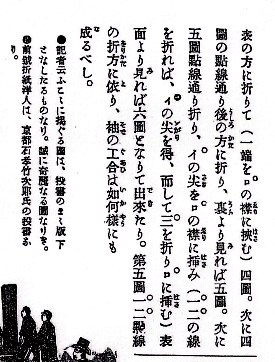 表の方に折りて(一端をロの襟に挾む)四圖。次に四
圖の點線通り後の方に折り、裏より見れば五圖。次に
五圖點線通り折り、イの尖をロの襟に挿み(一二の線
を折れば、イの尖を得、而して三を折りロに挿む)表
面より見れば六圖となりて出來たり。第五圖一二點線
の折方に依り、袖の工合は如何樣にも
成るべし。
●記者云ふこゝに掲ぐる圖は、投書のまゝ版下
となしたるものなり。誠に奇麗なる圖なりき。
●前號折紙洋人は、京都石峯竹次郎氏の投書なり。